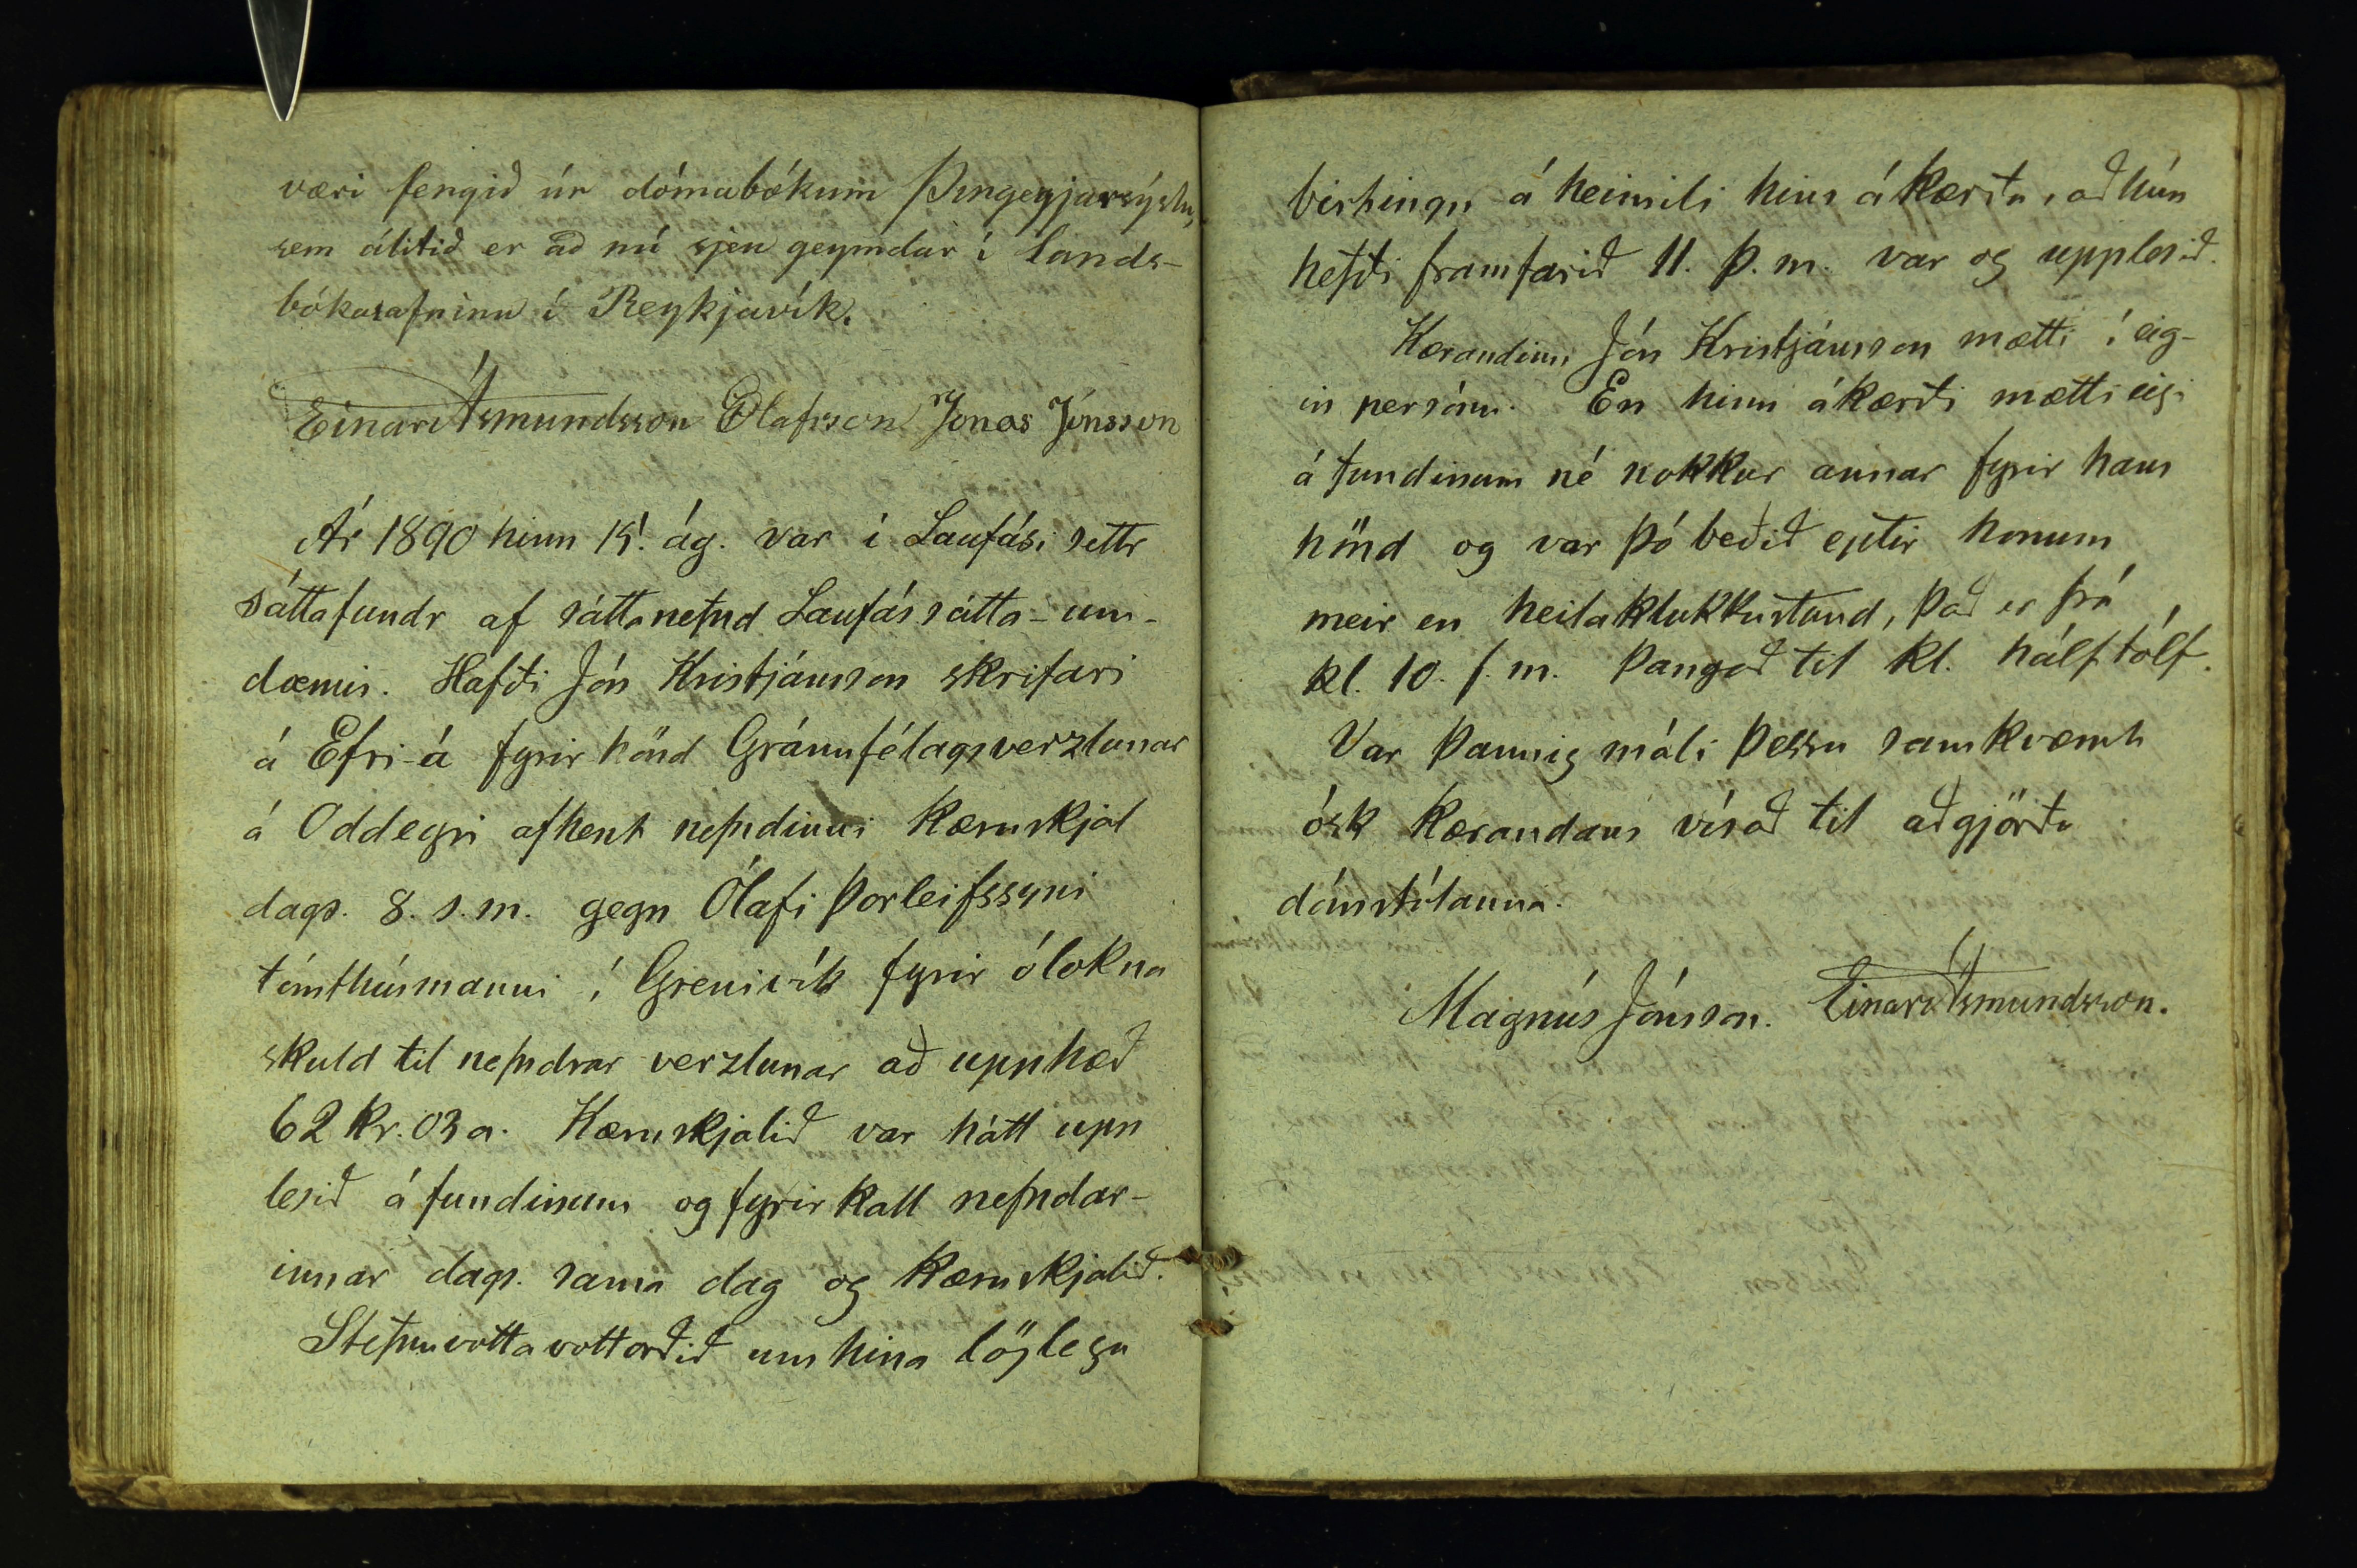 væri fengið úr dómabókum Þingeyjarsýslu,
sem álitið er að nú sjeu geymdar í Lands-
bókasafninu í Reykjavík.
Einar Ásmundsson Olafsson Jónas Jónsson
Ár 1890 hinn 15. ág. var í Laufási settr
sáttafundr af sáttanefnd Laufássátta-um-
dæmis. Hafði Jón Kristjánsson skrifari
á Efri-á fyrir hönd Gránufélagsverzlunar
á Oddeyri afhent nefndinni kæruskjal
dags. 8. s.m. gegn Ólafi Þorleifssyni
tómthúsmanni í Grenivík fyrir ólokna
skuld til nefndrar verzlunar að upphæð
62 kr. 03 a. Kæruskjalið var hátt upp
lesið á fundinum og fyrirkall nefndar-
innar dags. sama dag og kæruskjalið.
Stefnuvottavottorðið um hina löglegu
birtingu á heimili hins ákærða, að hún
hefði framfarið 11. þ.m. var og upplesið.
Kærandinn Jón Kristjánsson mætti í eig-
in persónu. En hinn ákærði mætti eigi
á fundinum né nokkur annar fyrir hans
hönd og var þó beðið eptir honum
meir en heila klukkustund, það er frá
kl. 10. f.m. þangað til kl. hálf tólf.
Var þannig máli þessu samkvæmt
ósk kærandans vísað til aðgjörða
dómstólanna.
Magnús Jónsson. Einar Ásmundsson.